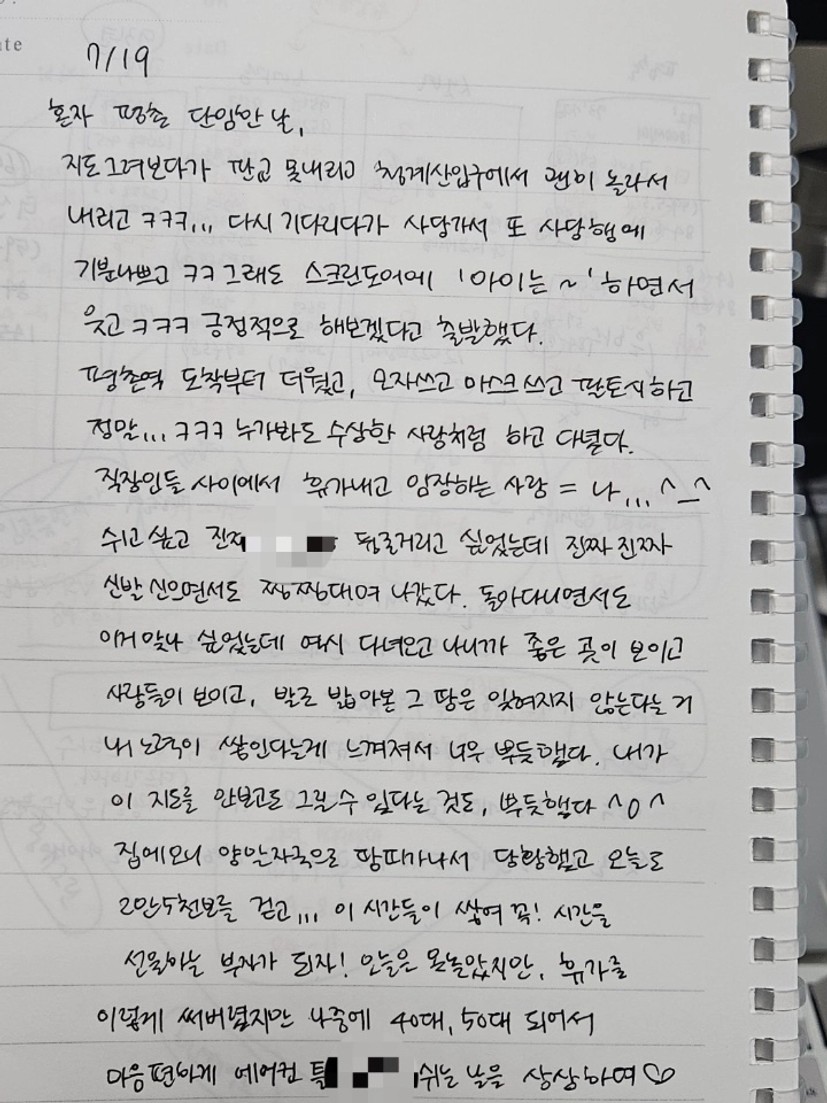 ate
7/19
혼자 평촌 단임한 날,
지도 그려보다가 판교 못내리고 청계산입구에서 괜히 놀라서
내리고 ㅋㅋㅋ... 다시 기다리다가 사당가서 또 사당행에
기분나쁘고 ㅋㅋ 그래도 스크린도어에 '아이는~' 하면서
웃고 ㅋㅋㅋ 긍정적으로 해보겠다고 출발했다.
평촌역 도착부터 더웠고, 모자쓰고 마스크 쓰고 팔토시하고
정말... ㅋㅋㅋ 누가봐도 수상한 사람처럼 하고 다녔다.
직장인들 사이에서 휴가내고 임장하는 사람 = 나... ^_^
쉬고 싶고 진짜 뒹굴거리고 싶었는데 진짜 진짜
신발 신으면서도 찡찡대며 나갔다. 돌아다니면서도
이거 맞나 싶었는데 역시 다녀오고 나니까 좋은 곳이 보이고
사람들이 보이고, 발로 밟아온 그 땅은 잊혀지지 않는다는 거
내 노력이 쌓인다는게 느껴져서 너무 뿌듯했다. 내가
이 지도를 안보고도 그릴 수 있다는 것도, 뿌듯했다 ^0^
집에오니 양말자국으로 땀띠가나서 당황했고 오늘도
2만5천보를 걷고... 이 시간들이 쌓여 꼭! 시간을
선물하는 부자가 되자! 오늘은 못놀았지만, 휴가를
이렇게 써버렸지만 나중에 40대, 50대 되어서
마음편하게 에어컨 틀 쉬는 날을 상상하며♡